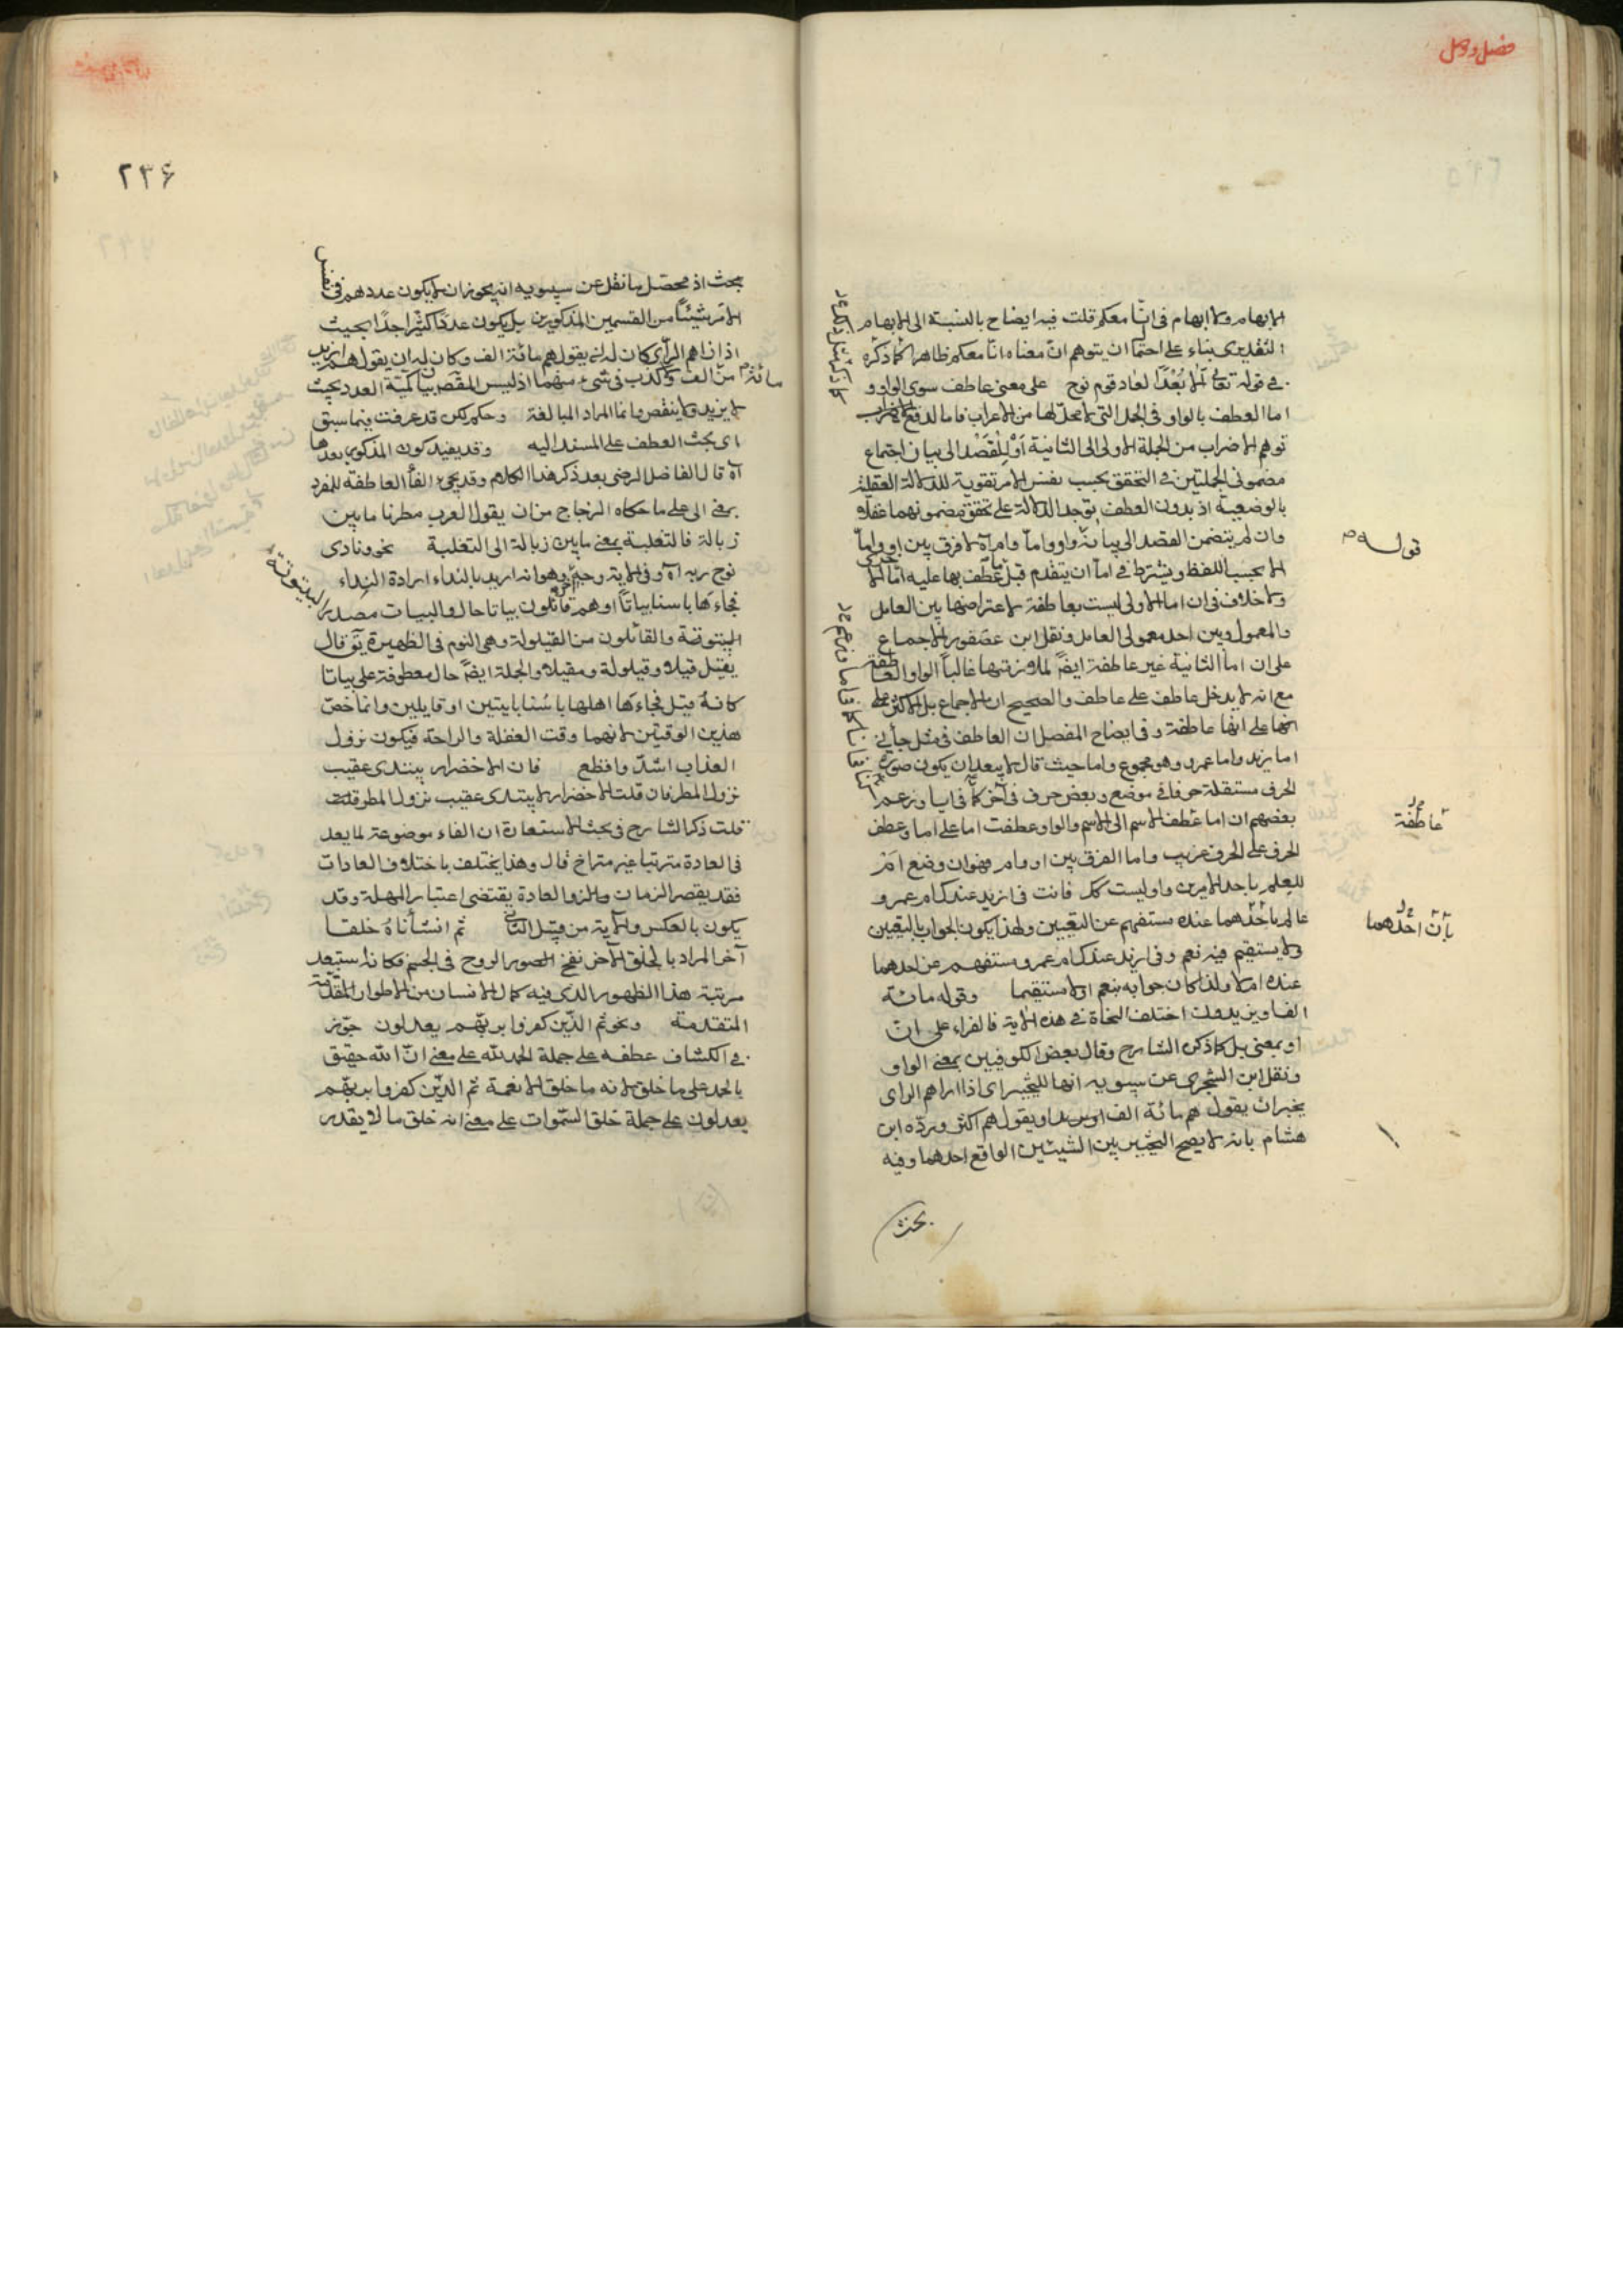 فصل و وصل
الابهام ولا ابهام فى انا معكم قلت فيه ايضاح بالنسبة الى الابهام
التقديرى بناء على احتمال ان يتوهم ان معناه انا معكم ظاهرا كما ذكره
فى قوله تعالى الا بُعْدًا لعاد قوم نوح على معنى عاطف سوى الواو و
اما العطف بالواو فى الجمل التى لا محل لها من الاعراب فاما لدفع
توهم الاضراب من الجملة الاولى الى الثانية أو للقَصْد الى بيان اجتماع
مضمونى الجملتين فى التحقق بحسب نفس الامر تقوية للدلالة العقلية
بالوضعية اذ بدون العطف يوجد الدلالة على تحقق مضمونهما عقلا
قوله
وان لم يتضمن القصد الى بيانه واو واما وام آه لا فرق بين او واما
الا بحسب اللفظ ويشترط فى اما ان يتقدم قبل عطف بها عليه اما
ولا خلاف فى ان اما الاولى ليست بعاطفة لاعتراضها بين العامل
والمعمول وبين احد معمولى العامل ونقل ابن عصفور الاجماع
على ان اما الثانية غير عاطفة ايضا لملازمتها غالبا الواو العاطفة
مع انه لا يدخل عاطف على عاطف والصحيح ان لا اجماع بل الاكثر على
انها على انها عاطفة وفى ايضاح المفصل ان العاطف فى مثل جاءنى
اما زيد واما عمرو وهو مجموع واما حيث قال لا يبعد ان يكون صورة
الحرف مستقلة حرفا فى موضع وبعض حرف فى آخر كما فى ايا وزعم
عاطفة
بعضهم ان اما عطف الاسم الى الاسم والواو عطفت اما على اما وعطف
الحرف على الحرف غريب واما الفرق بين او وام فهو ان وضع ام
للعلم باحد الامرين واو ليست كك فانت فى ازيد عندك ام عمرو
بان احدهما
عالم باحدهما عنده مستفهم عن التعيين ولهذا يكون الجواب بالتعيين
ولا يستقيم فيه نعم وفى ازيد عندك ام عمرو مستفهم عن احدهما
عنده ام لا ولذا كان جوابه بنعم او لا مستقيما وقوله مائة
الف او يزيدون اختلف النحاة فى هذه الآية فالفراء على ان
او بمعنى بل كما ذكره الشارح وقال بعض الكوفيين بمعنى الواو
ونقل ابن الشجرى عن سيبويه انها للتخيير اى اذا راهم الراى
يخير ان يقول هم مائة الف او يقول هم اكثر وردّه ابن
هشام بانه لا يصح التخيير بين الشيئين الواقع احدهما وفيه
بحث
٢٣۶
بحث اذ محصل ما نقل عن سيبويه انه يجوز ان لا يكون عددهم فى نفس
الامر شيئا من القسمين المذكورين بل يكون عددا كثيرا جدا بحيث
اذا راهم الرآى كان له ان يقول هم مائة الف وكان له ان يقول هم ازيد
من الف ولا كذب فى شئ منهما اذ ليس المقصد بيان كمية العدد بحيث
مائة
لا يزيد ولا ينقص وانما المراد المبالغة وحكم لكن قد عرفت فيما سبق
اى بحث العطف على المسند اليه وقد يفيد كون المذكور بعدها
آه قال الفاضل الرضى بعد ذكر هذا الكلام وقد يجئ الفاء العاطفة للمفرد
بمعنى الى على ما حكاه الزجاج من ان يقول العرب مطرنا ما بين
زبالة فالثعلبية بمعنى ما بين زبالة الى الثعلبية نحو ونادى
نوح ربه آه وفى الآية وجه آخر وهو انه اريد بالنداء ارادة النداء
فجاءها باسنا بياتا او هم قائلون بياتا حال والبيات مصدر
البيتوتة
البيتوتة والقائلون من القيلولة وهى النوم فى الظهيرة يق قال
يقيل قيلا وقيلولة ومقيلا والجملة ايضا حال معطوفة على بياتا
كانه قيل فجاءها اهلها باسنا بايتين او قايلين وانما خص
هذين الوقتين لانهما وقت الغفلة والراحة فيكون نزول
العذاب اشد وافظع فان الاخضرار يبتدى عقيب
نزول المطر فان قلت الاخضرار لا يبتدى عقيب نزول المطر قلت
قلت ذكر الشارح فى بحث الاستعارة ان الفاء موضوعة لما يعد
فى العادة مترتبا غير متراخ قال وهذا يختلف باختلاف العادات
فقد يقصر الزمان والعادة يقتضى اعتبار المهلة وقد
يكون بالعكس والآية من قبيل الثانى ثم انشأناه خلقا
آخر المراد بالخلق الآخر نفخ الروح فى الجسم فكانه استبعد
مرتبة هذا الظهور الذى فيه كمال الانسان من الاطوار المتقدمة
المتقدمة ونحو ثم الذين كفروا بربهم يعدلون جوز
فى الكشاف عطفه على جملة الحمد لله على معنى ان الله حقيق
بالحمد على ما خلق لانه ما خلق الا نعمة ثم الذين كفروا بربهم
يعدلون على جملة خلق السموات على معنى انه خلق ما لا يقدر